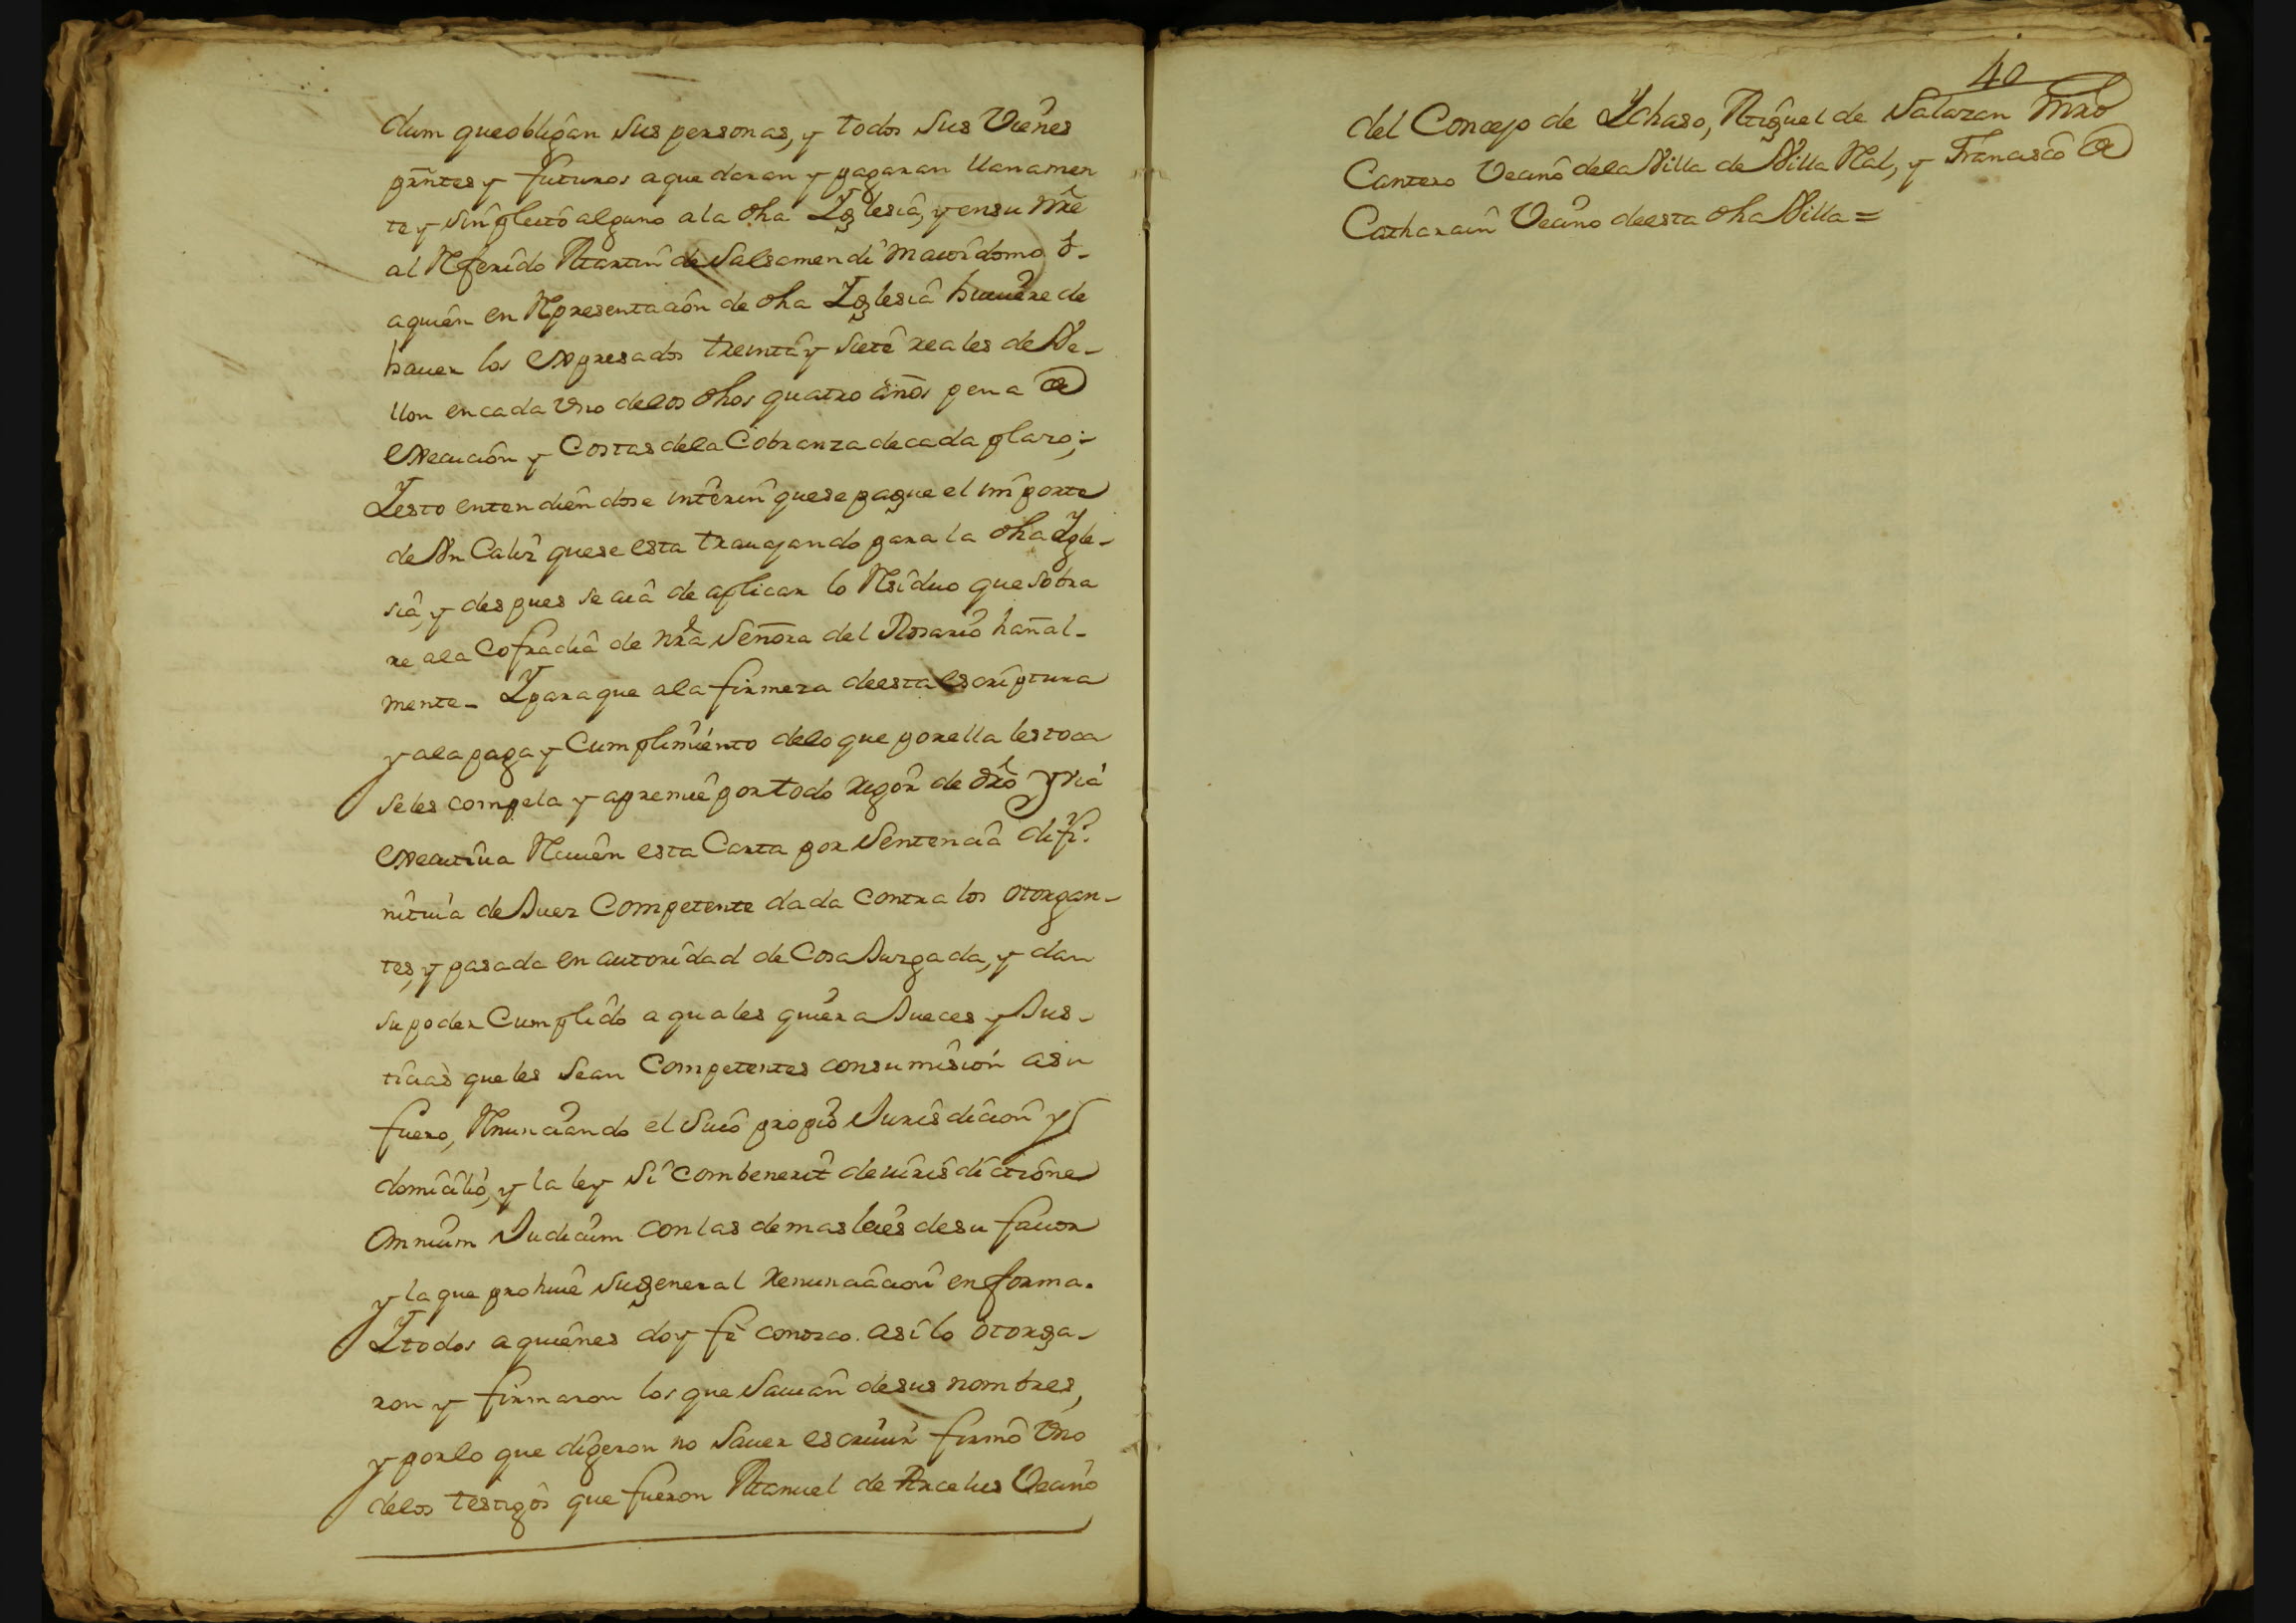 dum que obligan sus personas, y todos sus Vienes
pñtes y futuros a que daran y pagaran llanamen
te y sin pleito alguno a la dha Yglesia, y en su nre
al Referido Martin de Salsamendi maiordomo o
a quien en Representacion de dha Yglesia huuiere de
hauer los expresados treinta y siete reales de Ve-
llon en cada Vno de los dhos quatro años pena de
execucion y Costas de la Cobranza de cada plazo;-
Y esto entendiendose interin que se pague el importe
de Vn Caliz que se esta trauajando para la dha Ygle-
sia, y despues se aia de aplicar lo Residuo que sobra
re a la Cofradia de nra Señora del Rosario hañal-
mente- Y para que a la firmeza de esta escriptura
y a la paga y Cumplimiento de lo que por ella les toca
se les compela y apremie por todo rigor de dro y via
executiua Reciuen esta Carta por Sentencia difi-
nitiuia de Juez Competente dada contra los otorgan-
tes, y pasada en autoridad de Cosa Juzgada, y dan
su poder Cumplido a quales quiera Jueces y Jus-
ticias que les sean Competentes con sumision a su
fuero, Renunciando el suio propio Jurisdicion y
domicilio, y la ley si combenerit de iurisdictione
omnium Judicum con las demas leies de su fauor
y la que prohiue su general renunciacion en forma.
Y todos a quienes doy fe conozco. asi lo otorga-
ron y firmaron los que sauian de sus nombres,
y por lo que digeron no sauer escriuir firmo Vno
de los testigos que fueron Manuel de Arcelus Vecino
40
del Concejo de Ychaso, Miguel de Salazar mro
Cantero Vecino de la Villa de Villa Real, y Francisco de
Catharain Vecino de esta dha Villa =